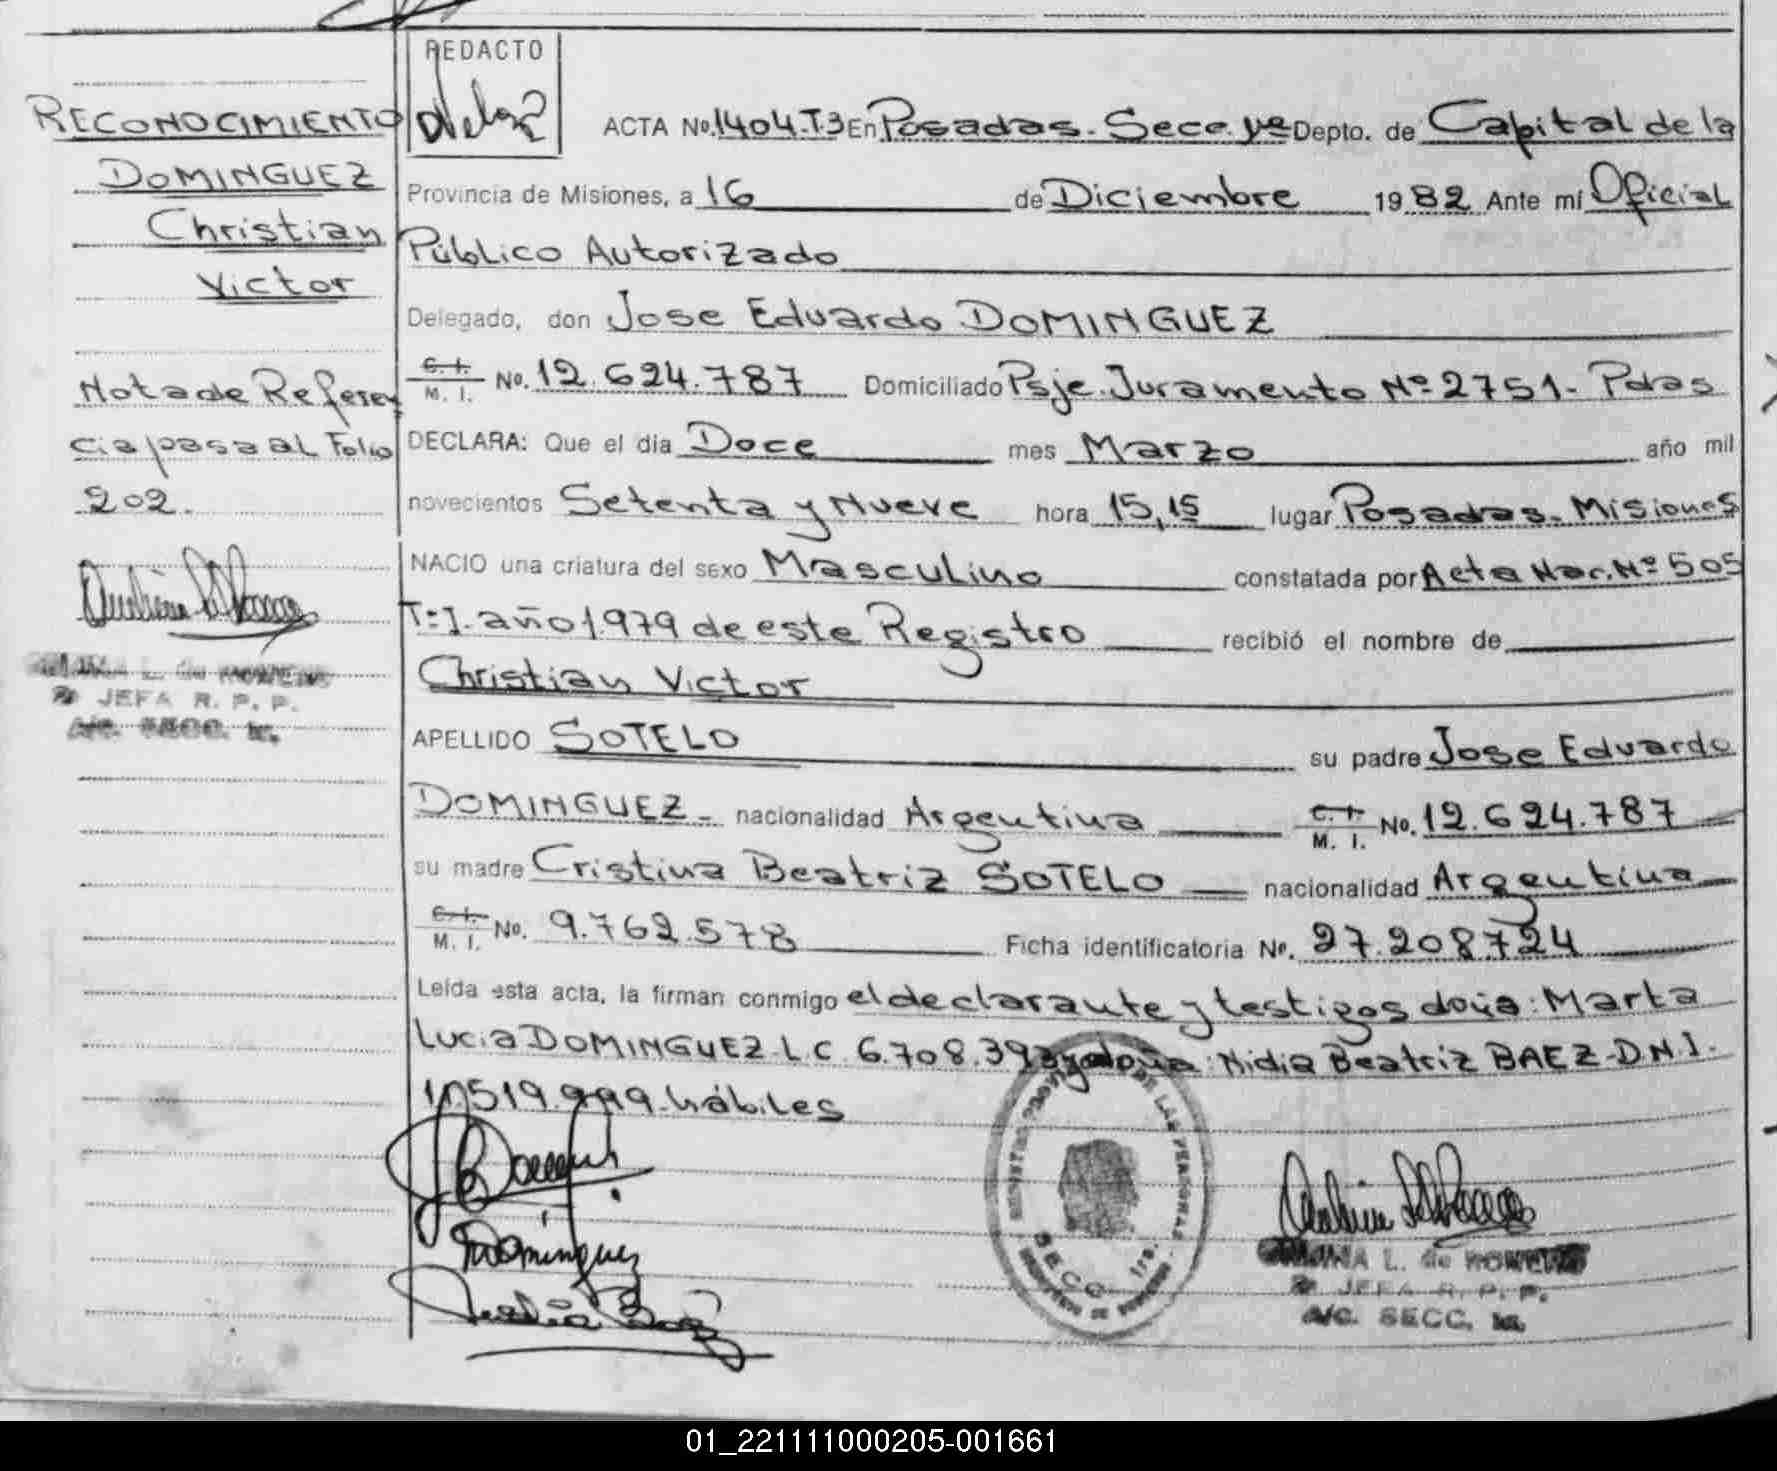 REDACTO
RECONOCIMIENTO
DOMINGUEZ
Christian
Victor
Nota de Referen
cia pasa al Folio
202.
JEFA R. P. P.
A/c. SECC. 1a.
ACTA No. 1404-T.3 En Posadas. Secc. 1ª Depto. de Capital de la
Provincia de Misiones, a 16 de Diciembre 1982 Ante mí Oficial
Público Autorizado
Delegado, don Jose Eduardo DOMINGUEZ
C. I. M. I. No. 12.624.787 Domiciliado Psje. Juramento Nº 2751- Pdas
DECLARA: Que el día Doce mes Marzo año mil
novecientos Setenta y Nueve hora 15,15 lugar Posadas. Misiones
NACIO una criatura del sexo Masculino constatada por Acta Nac. Nº 505
T:I. año 1.979 de este Registro recibió el nombre de
Christian Victor
APELLIDO SOTELO su padre Jose Eduardo
DOMINGUEZ- nacionalidad Argentina C. I. M. I. No. 12.624.787
su madre Cristina Beatriz SOTELO nacionalidad Argentina
C. I. M. I. No. 9.762.578 Ficha identificatoria No. 27.208.724
Leída esta acta, la firman conmigo el declarante y testigos doña: Marta
Lucia DOMINGUEZ-L.C. 6.708.393 y doña: Nidia Beatriz BAEZ-D.N.I.
11.519.999-hábiles
Dominguez
DE LAS PERSONAS
SECC. 1ra.
L. de
JEFA R. P. P.
A/C. SECC. 1a.
01_221111000205-001661